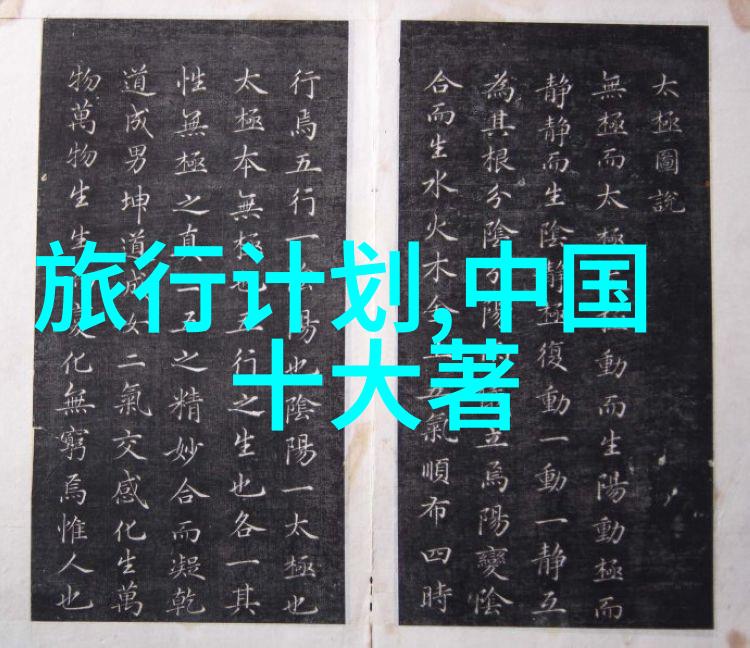 太極圖說
無極而太極動而生陽動極而
静静而生陰静極復動一動一静互
為其根分陰分陽立焉陽變陰
合而生水火木金五氣順布四時
行焉五行一陽也陰陽一太極也
太極本無極也五行之生也各一其
性無極之真二五之精妙合而凝乾
道成男坤道成女二氣交感化生萬
物萬物生生變化無窮焉惟人也
旅行计划,中国
十大著